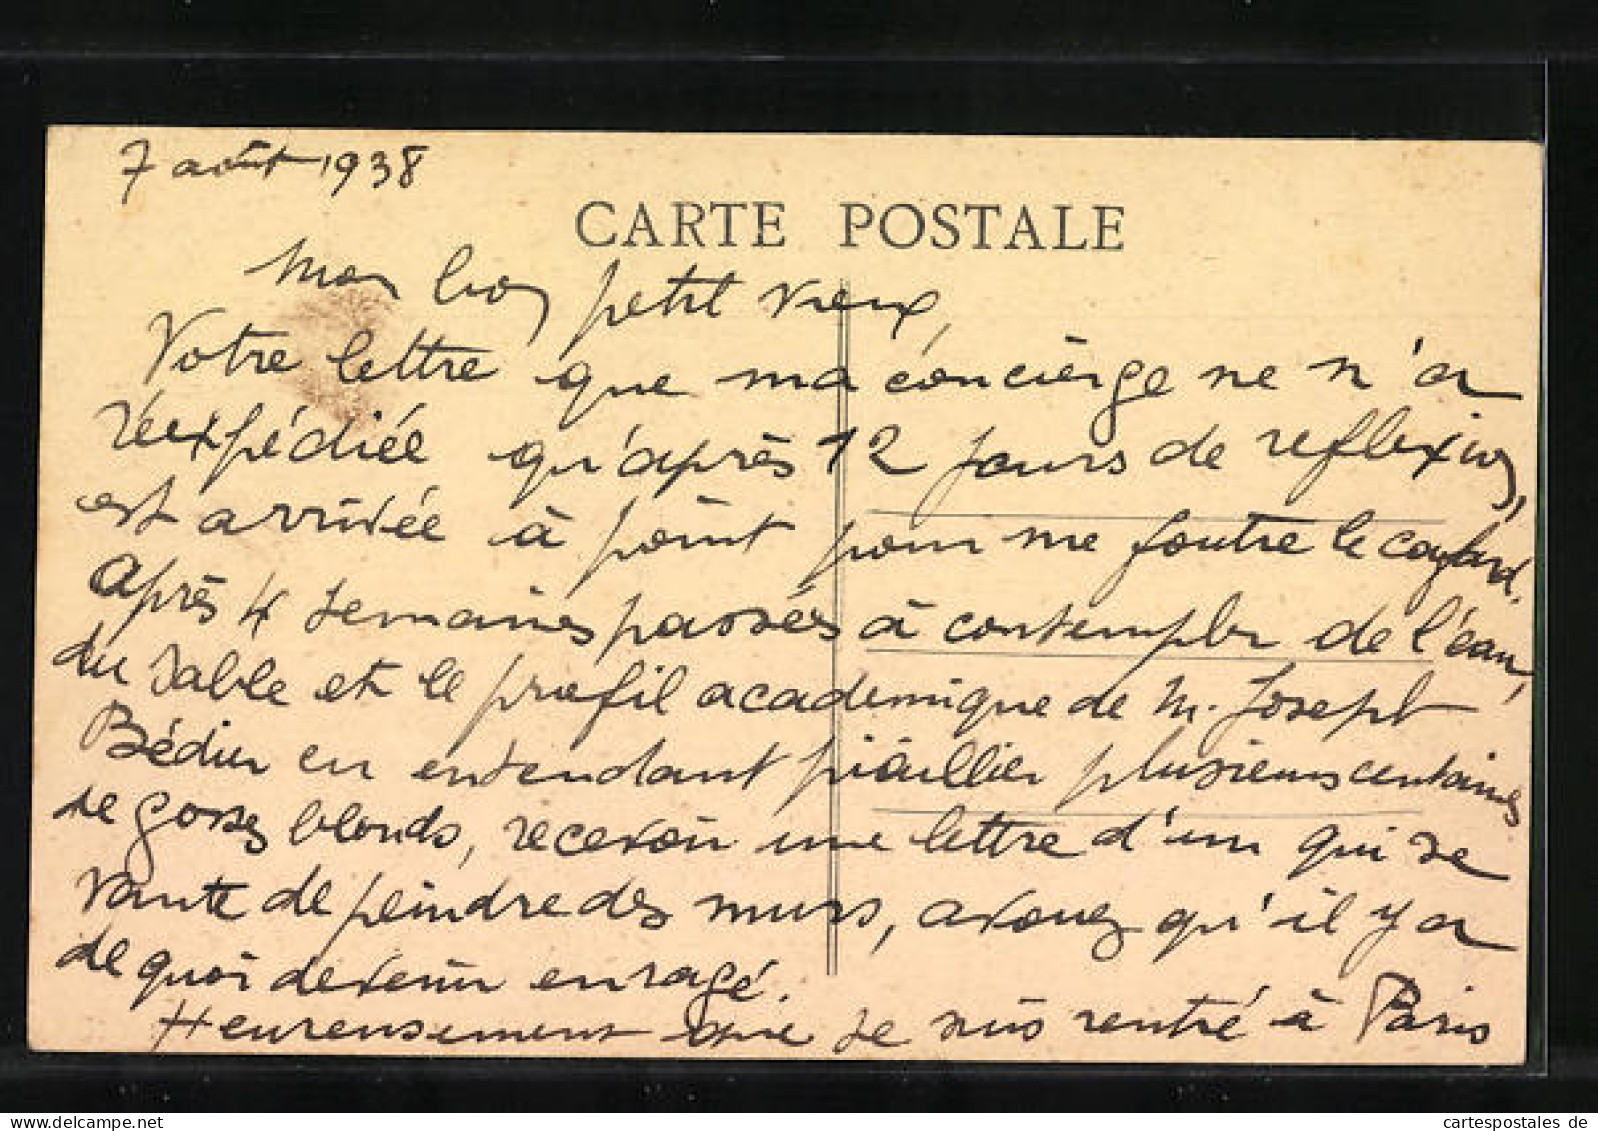 7 août 1938
CARTE POSTALE
Mon bon petit vieux,
Votre lettre que ma concierge ne m'a
réexpédiée qu'après 12 jours de reflexion,
est arrivée à point pour me foutre le cafard.
Après 4 semaines passées à contempler de l'eau,
du sable et le profil academique de M. Joseph
Bédier en entendant piailler plusieurs centaines
de gosses blonds, recevoir une lettre d'un qui se
vante de peindre des murs, avouez qu'il y a
de quoi devenir enragé.
Heureusement que je suis rentré à Paris
cartespostales de